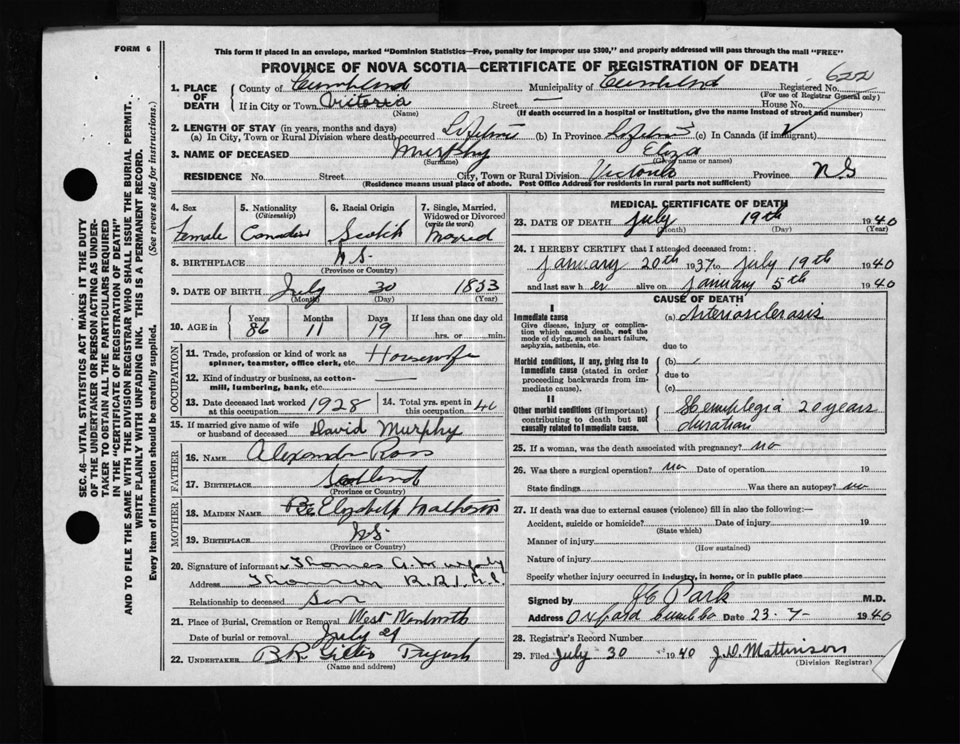 FORM 6
This form if placed in an envelope, marked "Dominion Statistics—Free, penalty for improper use $300," and properly addressed will pass through the mail "FREE"
PROVINCE OF NOVA SCOTIA—CERTIFICATE OF REGISTRATION OF DEATH
SEC. 46—VITAL STATISTICS ACT MAKES IT THE DUTY
OF THE UNDERTAKER OR PERSON ACTING AS UNDER-
TAKER TO OBTAIN ALL THE PARTICULARS REQUIRED
IN THE "CERTIFICATE OF REGISTRATION OF DEATH"
AND TO FILE THE SAME WITH THE DIVISION REGISTRAR WHO SHALL ISSUE THE BURIAL PERMIT.
WRITE PLAINLY WITH UNFADING INK. THIS IS A PERMANENT RECORD.
Every item of information should be carefully supplied. (See reverse side for instructions.)
1. PLACE OF DEATH County of Cumblnd Municipality of Cumblnd Registered No. 622
(For use of Registrar General only)
If in City or Town Victoria Street — House No.
(Name) (If death occurred in a hospital or institution, give the name instead of street and number)
2. LENGTH OF STAY (in years, months and days)
(a) In City, Town or Rural Division where death occurred Lifetime (b) In Province Lifetime (c) In Canada (if immigrant)
3. NAME OF DECEASED Murphy Eliza
(Surname) (Given name or names)
RESIDENCE No. Street City, Town or Rural Division Victoria Province NS
(Residence means usual place of abode. Post Office Address for residents in rural parts not sufficient)
4. Sex Female
5. Nationality (Citizenship) Canadian
6. Racial Origin Scotch
7. Single, Married, Widowed or Divorced (write the word) Married
8. BIRTHPLACE N.S.
(Province or Country)
9. DATE OF BIRTH July 30 1853
(Month) (Day) (Year)
10. AGE in Years 86 Months 11 Days 19 If less than one day old hrs. or min.
OCCUPATION
11. Trade, profession or kind of work as spinner, teamster, office clerk, etc. Housewife
12. Kind of industry or business, as cotton-mill, lumbering, bank, etc. —
13. Date deceased last worked at this occupation 1928 14. Total yrs. spent in this occupation 40
15. If married give name of wife or husband of deceased David Murphy
FATHER
16. NAME Alexander Ross
17. BIRTHPLACE Scotland
(Province or Country)
MOTHER
18. MAIDEN NAME Elizabeth Matheson
19. BIRTHPLACE N.S.
(Province or Country)
20. Signature of informant Thomas A. Murphy
Address Thomson R.R.1
Relationship to deceased son
21. Place of Burial, Cremation or Removal West Wentworth
Date of burial or removal July 21
22. UNDERTAKER B.R. Gilles Pugwash
(Name and address)
MEDICAL CERTIFICATE OF DEATH
23. DATE OF DEATH July 19th 1940
(Month) (Day) (Year)
24. I HEREBY CERTIFY that I attended deceased from:
January 20th 1937 to July 19th 1940
and last saw her alive on January 5th 1940
CAUSE OF DEATH
I
Immediate cause (a) Arteriosclerosis
Give disease, injury or complication which caused death, not the mode of dying, such as heart failure, asphyxia, asthenia, etc.
due to
Morbid conditions, if any, giving rise to immediate cause (stated in order proceeding backwards from immediate cause).
(b)
due to
(c)
II
Other morbid conditions (if important) contributing to death but not causally related to immediate cause.
Hemiplegia 20 years
duration
25. If a woman, was the death associated with pregnancy? no
26. Was there a surgical operation? no Date of operation 19
State findings Was there an autopsy? no
27. If death was due to external causes (violence) fill in also the following:—
Accident, suicide or homicide? Date of injury 19
(State which)
Manner of injury
(How sustained)
Nature of injury
Specify whether injury occurred in industry, in home, or in public place
Signed by Park M.D.
Address Oxford Date 23-7- 1940
28. Registrar's Record Number
29. Filed July 30 1940 J.D. Mattinson
(Division Registrar)